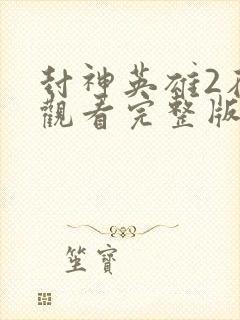 封神英雄2
觀看完整版
坐寶